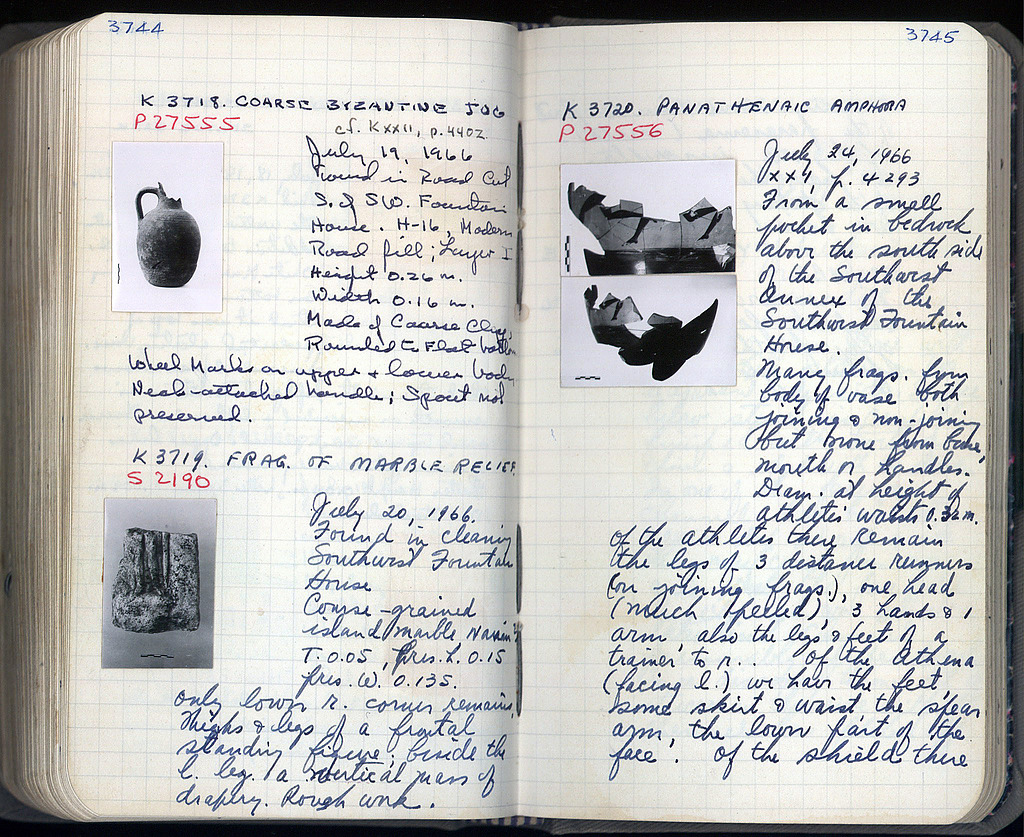 3744
K 3718. COARSE BYZANTINE JUG
P 27555
cf. KXXII, p. 4402
July 19, 1966
Found in Road Cut
S. of SW. Fountain
House. H-16, Modern
Road fill; Layer I
Height 0.26 m.
Width 0.16 m.
Made of Coarse Clay,
Rounded to Flat bottom
Wheel Marks on upper + lower body
Neck-attached handle; Spout not
preserved.
K 3719. FRAG. OF MARBLE RELIEF.
S 2190
July 20, 1966.
Found in cleaning
Southwest Fountain
House
Coarse-grained
island marble
T. 0.05, Pres. h. 0.15
Pres. W. 0.135.
only lower r. corner remains,
thighs & legs of a frontal
standing figure, beside the
l. leg. a vertical mass of
drapery. Rough work.
3745
K 3720. PANATHENAIC AMPHORA
P 27556
July 24, 1966
XXI, p. 4293
From a small
pocket in bedrock
above the south side
of the Southwest
Annex of the
Southwest Fountain
House.
Many frags. from
body of vase both
joining & non-joining
but none from base,
mouth or handles.
Diam. at height of
athletes waists 0.32 m.
of the athletes there remain
the legs of 3 distance runners
(on joining frags.), one head
(much spelled), 3 hands & 1
arm, also the legs & feet of a
trainer to r.. of the Athena
(facing l.) we have the feet,
some skirt & waist the spear
arm, the lower part of the
face. of the shield there